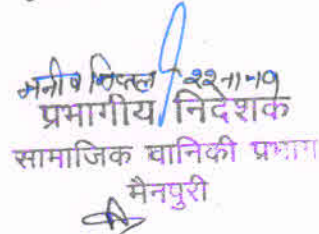 मनीष मित्तल 22-11-19
प्रभागीय निदेशक
सामाजिक वानिकी प्रभाग
मैनपुरी